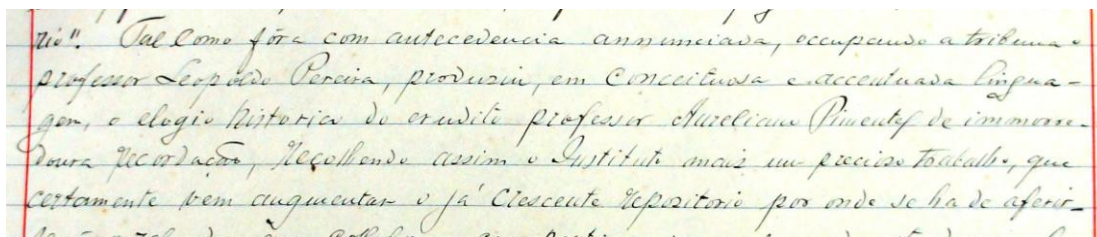 rio". Tal como fôra com antecedencia annunciada, occupando a tribuna o
professor Leopoldo Pereira, produziu, em conceituosa e accentuada lingua-
gem, o elogio historico do erudito professor Aureliano Pimentel de immorre-
doura recordação, recolhendo assim o Instituto mais um precioso trabalho, que
certamente vem augmentar o já crescente repositorio por onde se ha de aferir